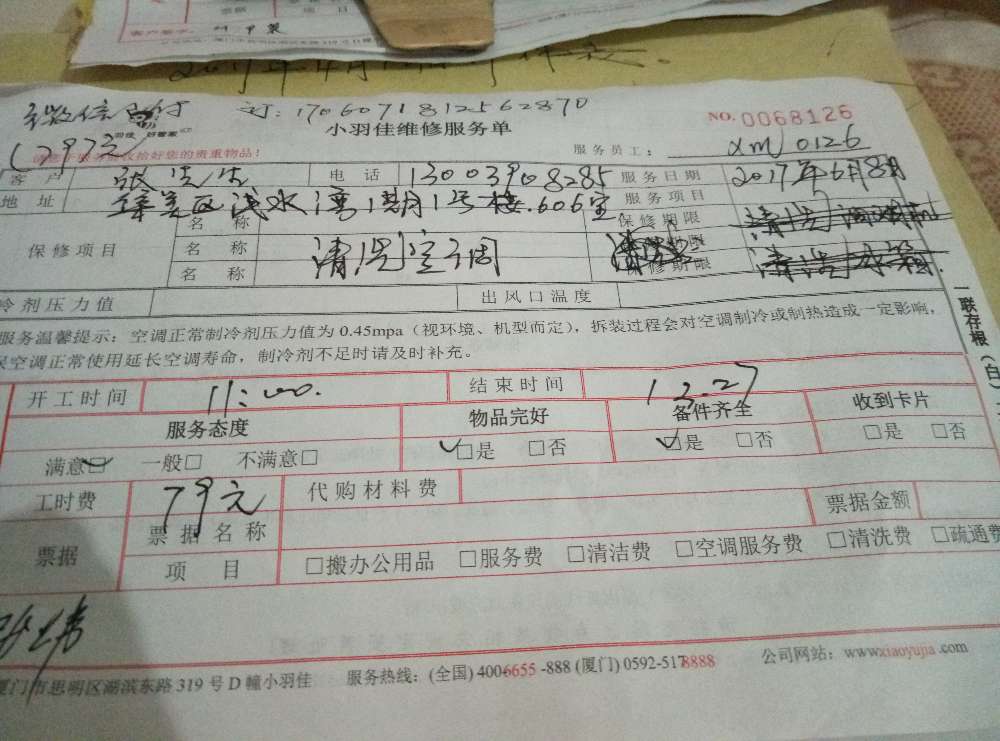 票据
项 目
微信已付 订:170607181256 2870
(7973)
小羽佳维修服务单
NO. 0068126
收拾好您的贵重物品!
服务员工: XM0126
客 户 张先生 电 话 13003908285 服务日期 2017年6月8日
地 址 集美区浅水湾1期1号楼.606室 服务项目
名 称 保修期限
保修项目 名 称 清洗空调
名 称 保修期限
冷剂压力值 出风口温度
服务温馨提示:空调正常制冷剂压力值为 0.45mpa(视环境、机型而定),拆装过程会对空调制冷或制热造成一定影响,
空调正常使用延长空调寿命,制冷剂不足时请及时补充。
一联存根(白)
开工时间 11:00. 结束时间 13.27
服务态度 物品完好 备件齐全 收到卡片
满意☑ 一般□ 不满意□ ☑是 □否 ☑是 □否 □是 □否
工时费 79元 代购材料费
票据 票据名称 票据金额
项 目 □搬办公用品 □服务费 □清洁费 □空调服务费 □清洗费 □疏通费
厦门市思明区湖滨东路 319 号 D 幢小羽佳 服务热线:(全国) 400-6655-888 (厦门) 0592-5178888 公司网站:www.xiaoyujia.com